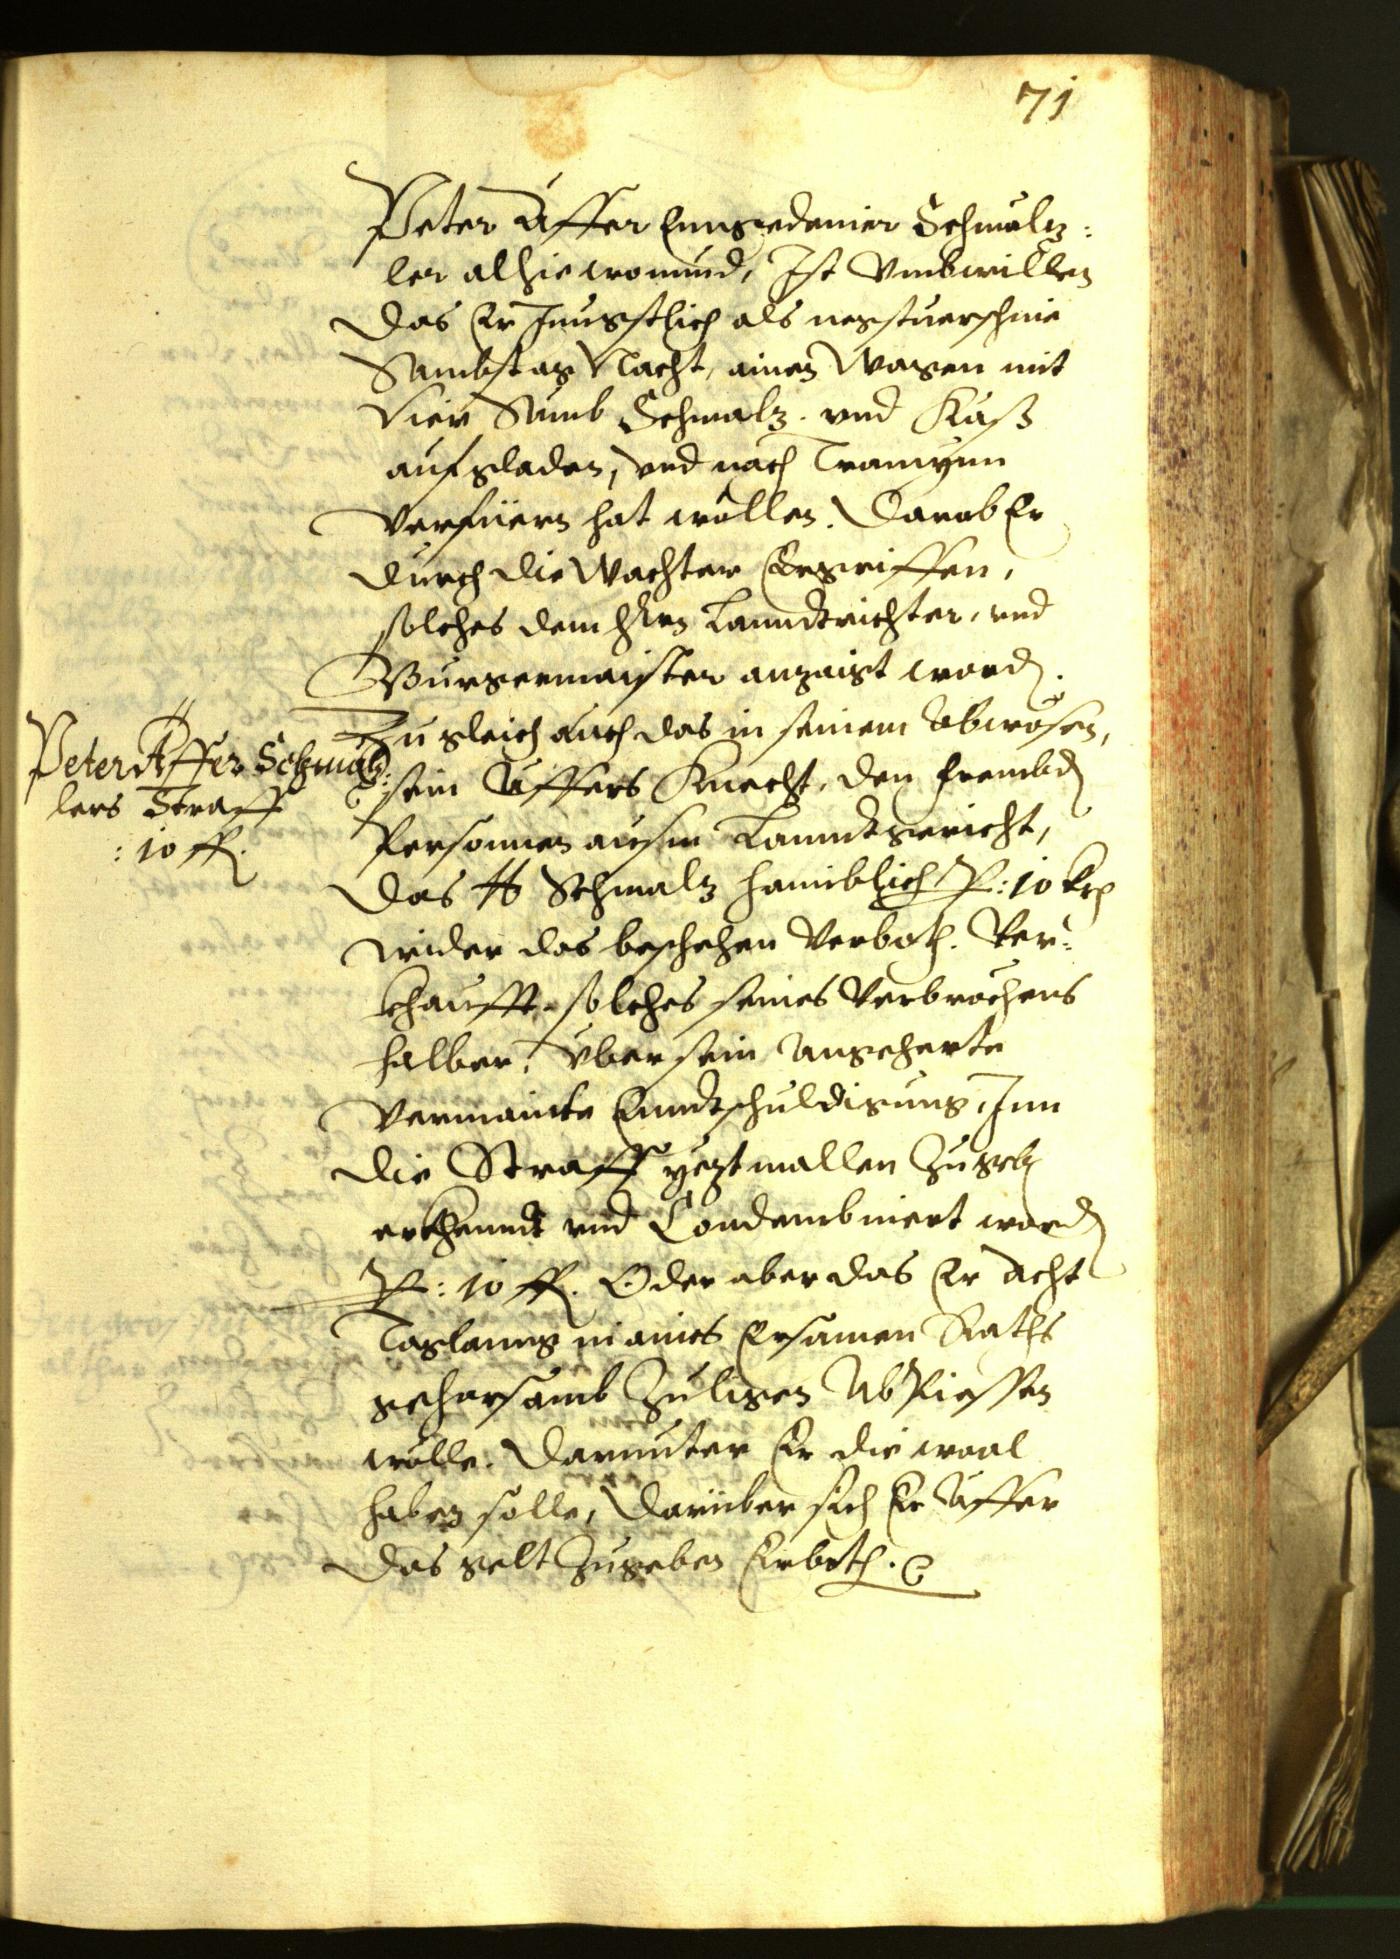 71
Peter Äffer Enngedeiner Schmalz:
ler alhie wonund, Ist vmbwillen
das Er Jnngstlich als negstuerschine
Sambstag Nacht, ainen Wagen mit
vier Sämb Schmalz. vnd Käß
aufgladen, vnd nach Tramynn
verfüern hat wöllen. Darob Er
durch die Wachter Ergriffen,
solches dem Hern Lanndtrichter, vnd
Burgermaister anzaigt word.
Zugleich auch das in seinem Abwösen,
sein Äffers Knecht, den frembd
Personnen ausm Lanndtgericht,
das ℔ Schmalz haimblich P: 10 krz
wider das beschehen Verboth. Ver¬
khaufft. solches seines Verbrochens
halber, vber sein angeherte
vermainte Enndtschuldigung, Inn
die Straff yeztmallen Zugeb
erkhenndt vnd Condembniert word
P: 10 fl. Oder aber das Er acht
Taglanng in aines Ersamen Raths
gehorsamb Zuligen AbPiessen
wölle. Darunter Er die waal
haben solle, Darüber sich Er Äffer
das gelt Zugeben Erboth.
Peter Äffer Schmalz:
lers Straff
: 10 fl.